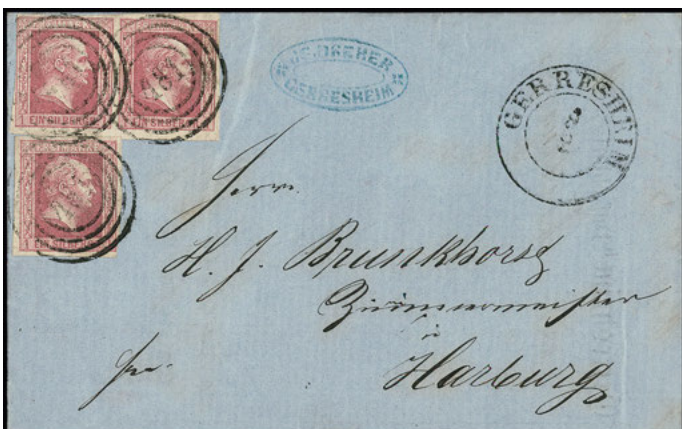 EIN SILBERGR.
EIN SILBERGR.
EIN SILBERGR.
DREHER
GERRESHEIM
GERRESHEIM
Herrn
H. J. Brunkhorst
Zimmermeister
in
Harburg
fr.